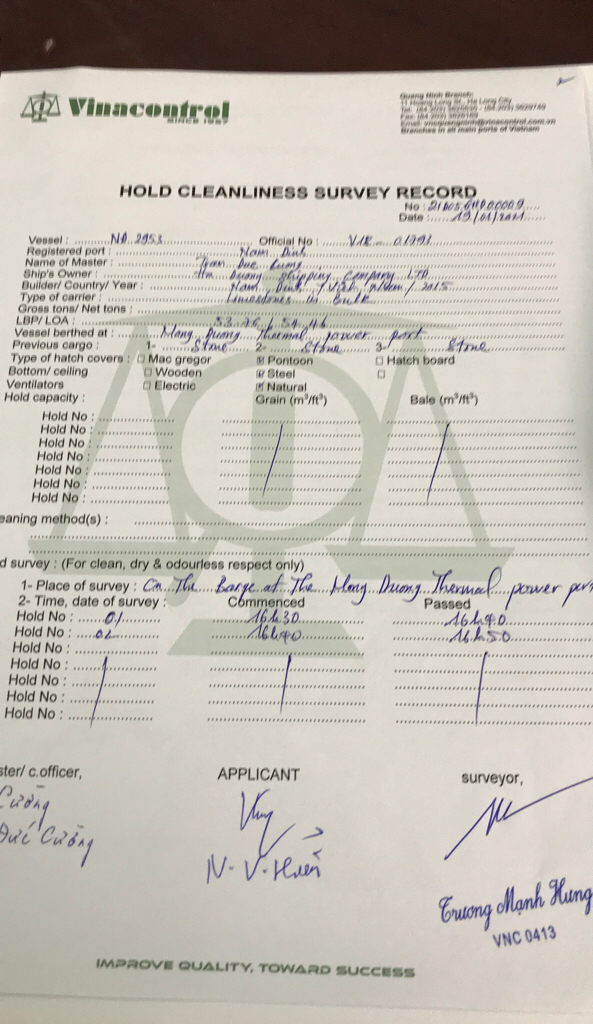 Vinacontrol
SINCE 1957
Quang Ninh Branch:
11 Hoang Long St., Ha Long City
Branches in all main ports of Vietnam
HOLD CLEANLINESS SURVEY RECORD
No :
Date : 19/01/2021
Vessel : NĐ 2953 Official No :
Registered port : Nam Dinh
Name of Master : Tran Duc Cuong
Ship's Owner : Duong Shipping Company LTD
Builder/ Country/ Year : Nam Dinh / Viet Nam / 2015
Type of carrier : Limestones in Bulk
Gross tons/ Net tons :
LBP/ LOA : 53.76 / 54.46
Vessel berthed at : Mong Duong Thermal power port
Previous cargo : 1- Stone 2- Stone 3- Stone
Type of hatch covers : Mac gregor Pontoon Hatch board
Bottom/ ceiling Wooden Steel
Ventilators Electric Natural
Hold capacity : Grain (m³/ft³) Bale (m³/ft³)
Hold No :
Hold No :
Hold No :
Hold No :
Hold No :
Hold No :
Hold No :
eaning method(s) :
d survey : (For clean, dry & odourless respect only)
1- Place of survey : On The Barge at The Mong Duong Thermal power por
2- Time, date of survey : Commenced Passed
Hold No : 01 16h30 16h40
Hold No : 02 16h40 16h50
Hold No :
Hold No :
Hold No :
Hold No :
Hold No :
ster/ c.officer, APPLICANT surveyor,
Cường
Đức Cường
N-V-Huấn
Trương Mạnh Hùng
VNC 0413
IMPROVE QUALITY, TOWARD SUCCESS